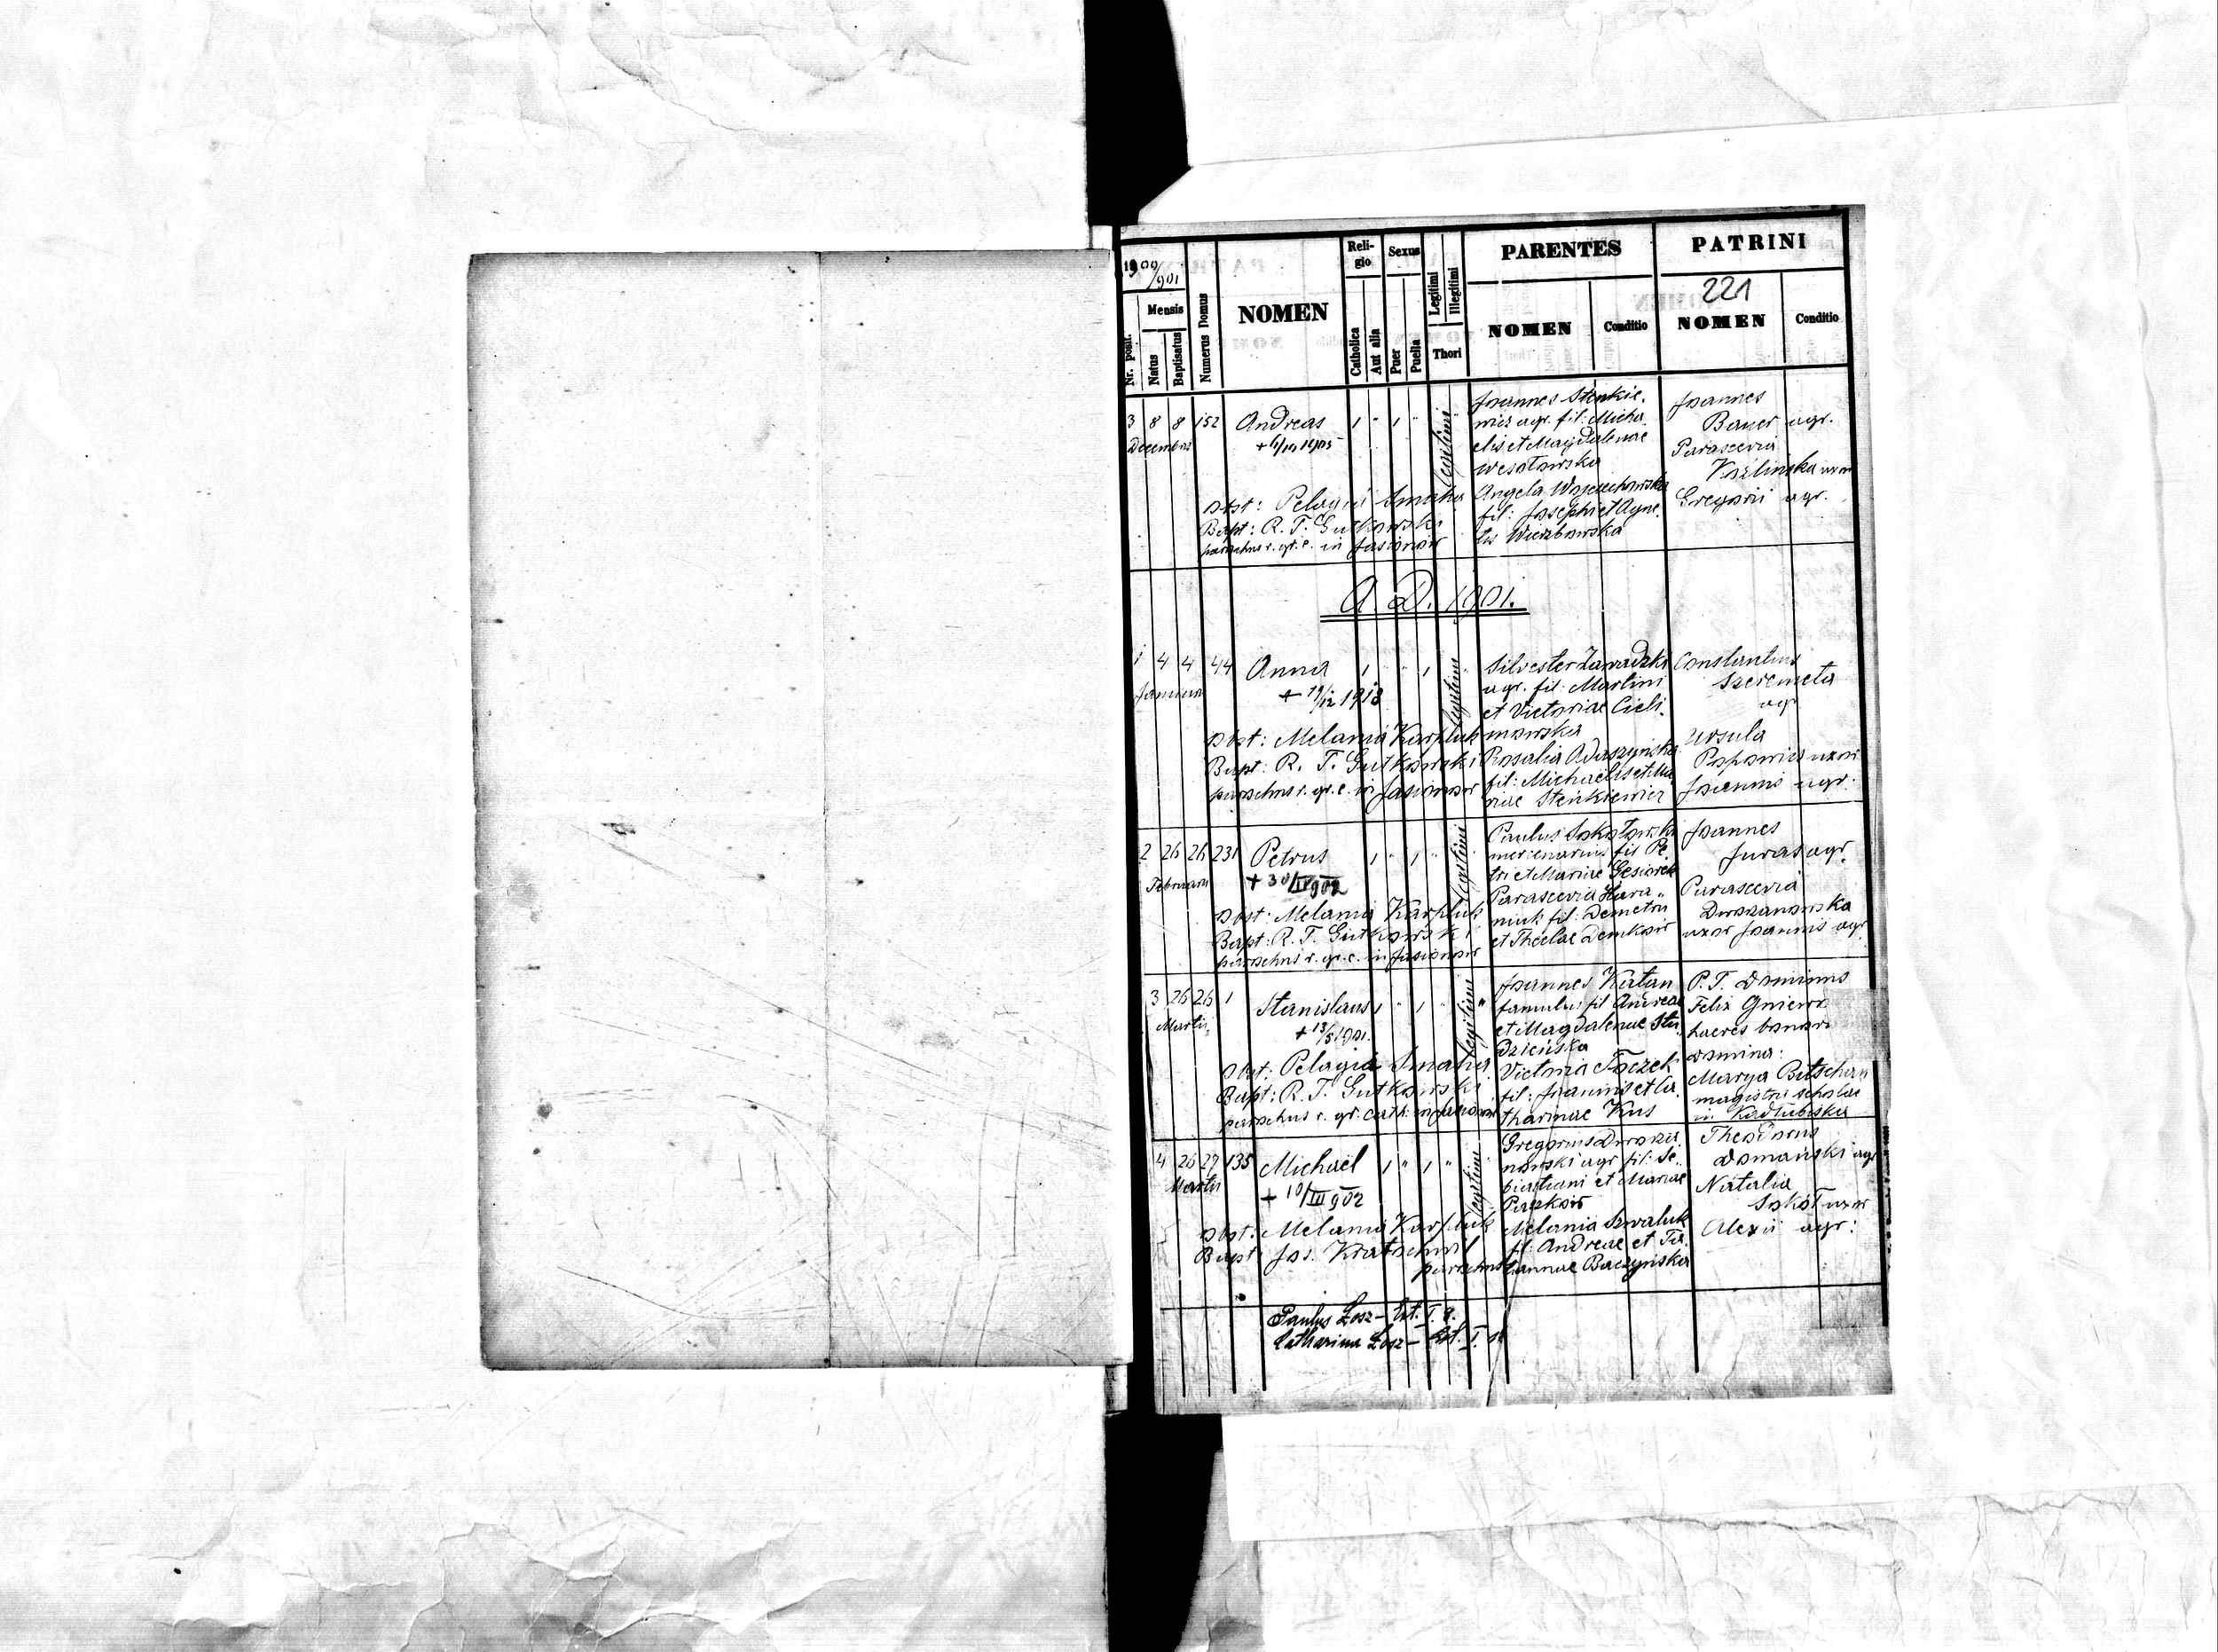 1900/901
Nr. posit.
Mensis
Natus
Baptisatus
Numerus Domus
NOMEN
Religio
Catholica
Aut alia
Sexus
Puer
Puella
Legitimi
Illegitimi
Thori
PARENTES
NOMEN
Conditio
PATRINI
221
NOMEN
Conditio
3 8 8 152 Andreas 1 " 1 "
Decembris
legitimi
Joannes Stenkie-
wicz agr. fil: Micha-
elis et Magdalenae
Wesołowska
Angela Wojciechowska
fil: Josephi et Agne-
tis Wierzbowska
Joannes
Bauer agr.
Parascevia
Kozlinska uxor
Gregorii agr.
obst: Pelagia Smaha
Bapt: R. T. Gutkowski
parochus r. gr. c. in Jasionow
A. D. 1901.
1 4 4 44 Anna 1 " " 1
Januarii
+ 19/12 1918
legitimi
Silvester Zawadzki
agr. fil: Martini
et Victoriae Cieli-
mowska
Rosalia Adaszyńska
fil: Michaelis et Ma-
riae Stenkiewicz
Constantius
Szeremeta
agr
Ursula
Popowicz uxor
Joannis agr.
obst: Melania Karpluk
Bapt: R. T. Gutkowski
parochus r. gr. c. in Jasionow
2 26 26 231 Petrus 1 " 1 "
Februarii
+ 30/IV 902
legitimi
Paulus Sokołowski
mercenarius fil Pe-
tri et Mariae Gesiorek
Parascevia Hara-
niuk fil: Demetrii
et Theclae Demkow
Joannes
Juras agr.
Parascevia
uxor Joannis agr.
obst: Melania Karpluk
Bapt: R. T. Gutkowski
parochus r. gr. c. in Jasionow
3 26 26 1 Stanislaus 1 " 1 "
Martii
+ 13/5 1901.
legitimi
Joannes Katan
famulus fil Andreae
et Magdalenae Stu-
dzieńska
Victoria Toczek
fil: Joannis et Ca-
tharinae Kus
P. T. Dominus
Felix Gniewosz
haeres bonor:
Domina:
Marya Butschan
magistra scholae
in Kadłubiska
obst: Pelagia Smaha
Bapt: R. T. Gutkowski
parochus r. gr. cath. in Jasionow
4 26 27 135 Michael 1 " 1 "
Martii
+ 10/III 902
legitimi
nowski agr fil: Se-
bastiani et Mariae
Melania Szwaluk
fil: Andreae et Ta-
tiannae Baczyńska
Theodorus
Domański agr
Natalia
Sokół uxor
Alexii agr:
obst: Melania Karpluk
Bapt: Jos. Kratochwil
parochus
Paulus Łosz
Catharina Łosz